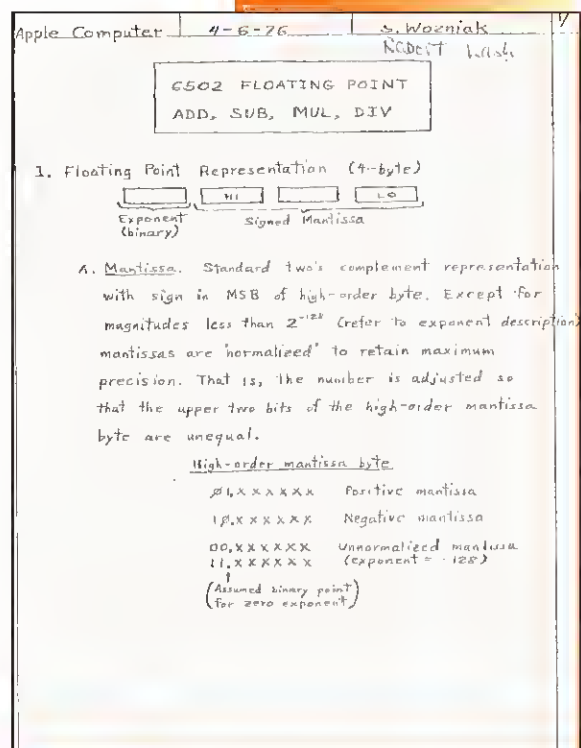 17
Apple Computer 4-6-76 S. Wozniak
6502 FLOATING POINT
ADD, SUB, MUL, DIV
1. Floating Point Representation (4-byte)
HI LO
Exponent Signed Mantissa
(binary)
A. Mantissa. Standard two's complement representation
with sign in MSB of high-order byte. Except for
magnitudes less than 2^-128 (refer to exponent description)
mantissas are "normalized" to retain maximum
precision. That is, the number is adjusted so
that the upper two bits of the high-order mantissa
byte are unequal.
High-order mantissa byte
01.XXXXXX Positive mantissa
10.XXXXXX Negative mantissa
00.XXXXXX Unnormalized mantissa
11.XXXXXX (exponent = -128)
(Assumed binary point
for zero exponent)